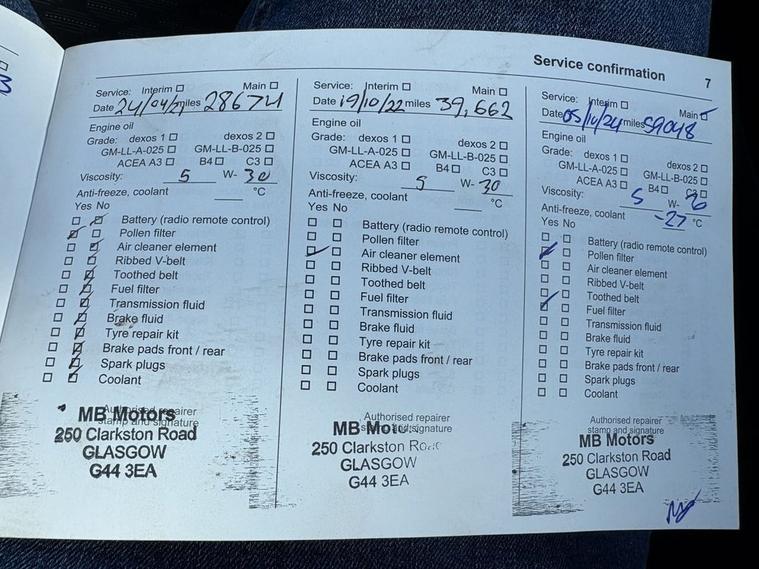 Service confirmation
7
Service: Interim Main
Date 24/04/21 miles 28674
Engine oil
Grade: dexos 1 dexos 2
GM-LL-A-025 GM-LL-B-025
ACEA A3 B4 C3
Viscosity: 5 W- 30
Anti-freeze, coolant °C
Yes No
Battery (radio remote control)
Pollen filter
Air cleaner element
Ribbed V-belt
Toothed belt
Fuel filter
Transmission fluid
Brake fluid
Tyre repair kit
Brake pads front / rear
Spark plugs
Coolant
Authorised repairer
stamp and signature
MB Motors
250 Clarkston Road
GLASGOW
G44 3EA
Service: Interim Main
Date 19/10/22 miles 39,662
Engine oil
Grade: dexos 1 dexos 2
GM-LL-A-025 GM-LL-B-025
ACEA A3 B4 C3
Viscosity: 5 W- 30
Anti-freeze, coolant °C
Yes No
Battery (radio remote control)
Pollen filter
Air cleaner element
Ribbed V-belt
Toothed belt
Fuel filter
Transmission fluid
Brake fluid
Tyre repair kit
Brake pads front / rear
Spark plugs
Coolant
Authorised repairer
stamp and signature
MB Motors
250 Clarkston Road
GLASGOW
G44 3EA
Service: Interim Main
Date 05/10/24 miles 59048
Engine oil
Grade: dexos 1 dexos 2
GM-LL-A-025 GM-LL-B-025
ACEA A3 B4 C3
Viscosity: 5 W-
Anti-freeze, coolant -27 °C
Yes No
Battery (radio remote control)
Pollen filter
Air cleaner element
Ribbed V-belt
Toothed belt
Fuel filter
Transmission fluid
Brake fluid
Tyre repair kit
Brake pads front / rear
Spark plugs
Coolant
Authorised repairer
stamp and signature
MB Motors
250 Clarkston Road
GLASGOW
G44 3EA